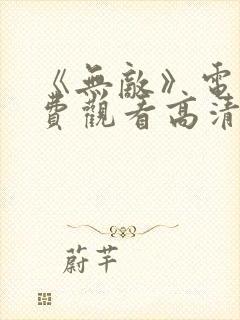 《無敵》電
費觀看高清
蔚芊